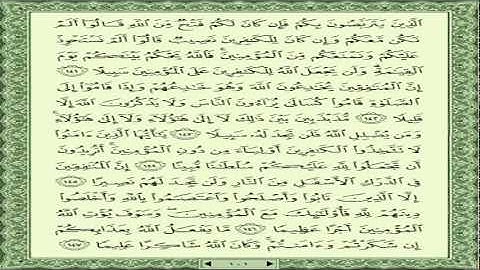 ٱلَّذِينَ يَتَرَبَّصُونَ بِكُمْ فَإِن كَانَ لَكُمْ فَتْحٌ مِّنَ ٱللَّهِ قَالُوٓا۟ أَلَمْ
نَكُن مَّعَكُمْ وَإِن كَانَ لِلْكَٰفِرِينَ نَصِيبٌ قَالُوٓا۟ أَلَمْ نَسْتَحْوِذْ
عَلَيْكُمْ وَنَمْنَعْكُم مِّنَ ٱلْمُؤْمِنِينَ ۚ فَٱللَّهُ يَحْكُمُ بَيْنَكُمْ يَوْمَ
ٱلْقِيَٰمَةِ ۗ وَلَن يَجْعَلَ ٱللَّهُ لِلْكَٰفِرِينَ عَلَى ٱلْمُؤْمِنِينَ سَبِيلًا ١٤١
إِنَّ ٱلْمُنَٰفِقِينَ يُخَٰدِعُونَ ٱللَّهَ وَهُوَ خَٰدِعُهُمْ وَإِذَا قَامُوٓا۟ إِلَى
ٱلصَّلَوٰةِ قَامُوا۟ كُسَالَىٰ يُرَآءُونَ ٱلنَّاسَ وَلَا يَذْكُرُونَ ٱللَّهَ إِلَّا
قَلِيلًا ١٤٢ مُّذَبْذَبِينَ بَيْنَ ذَٰلِكَ لَآ إِلَىٰ هَٰٓؤُلَآءِ وَلَآ إِلَىٰ هَٰٓؤُلَآءِ ۚ
وَمَن يُضْلِلِ ٱللَّهُ فَلَن تَجِدَ لَهُۥ سَبِيلًا ١٤٣ يَٰٓأَيُّهَا ٱلَّذِينَ ءَامَنُوا۟
لَا تَتَّخِذُوا۟ ٱلْكَٰفِرِينَ أَوْلِيَآءَ مِن دُونِ ٱلْمُؤْمِنِينَ ۚ أَتُرِيدُونَ
أَن تَجْعَلُوا۟ لِلَّهِ عَلَيْكُمْ سُلْطَٰنًا مُّبِينًا ١٤٤ إِنَّ ٱلْمُنَٰفِقِينَ
فِى ٱلدَّرْكِ ٱلْأَسْفَلِ مِنَ ٱلنَّارِ وَلَن تَجِدَ لَهُمْ نَصِيرًا ١٤٥
إِلَّا ٱلَّذِينَ تَابُوا۟ وَأَصْلَحُوا۟ وَٱعْتَصَمُوا۟ بِٱللَّهِ وَأَخْلَصُوا۟
دِينَهُمْ لِلَّهِ فَأُو۟لَٰٓئِكَ مَعَ ٱلْمُؤْمِنِينَ ۖ وَسَوْفَ يُؤْتِ ٱللَّهُ
ٱلْمُؤْمِنِينَ أَجْرًا عَظِيمًا ١٤٦ مَّا يَفْعَلُ ٱللَّهُ بِعَذَابِكُمْ
إِن شَكَرْتُمْ وَءَامَنتُمْ ۚ وَكَانَ ٱللَّهُ شَاكِرًا عَلِيمًا ١٤٧
١٠١